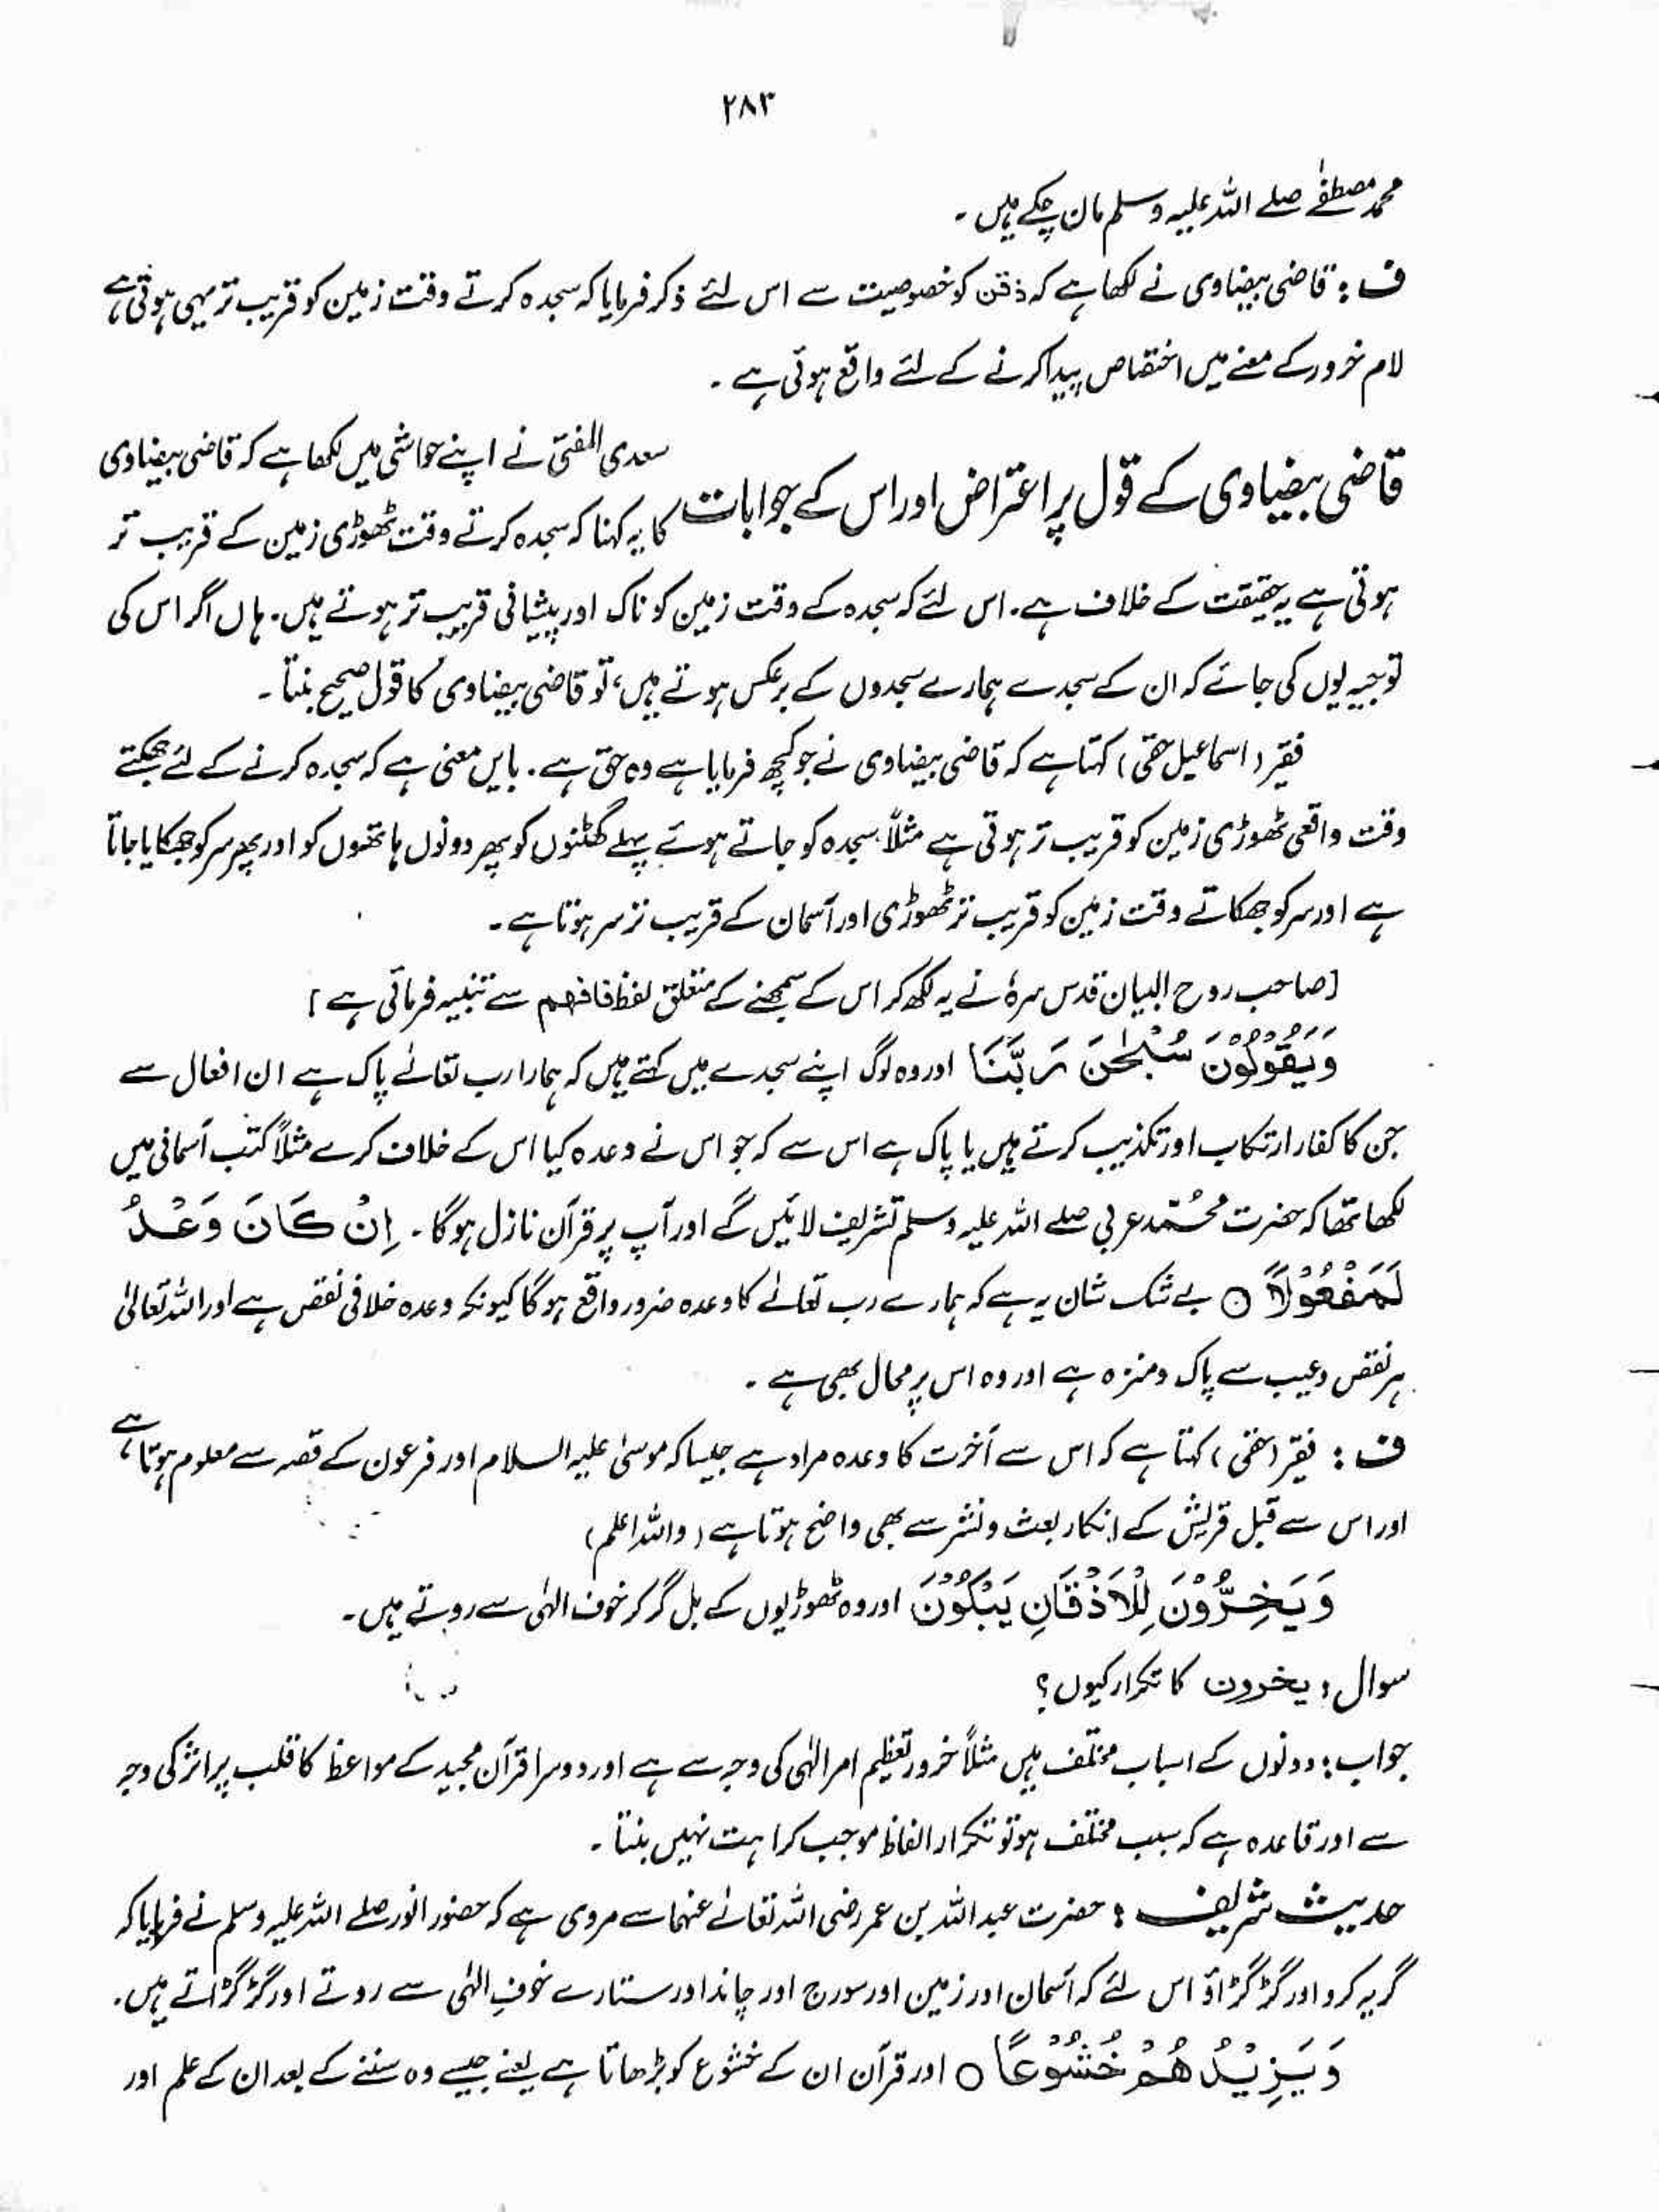 ۲۸۳
محمد مصطفٰے صلے اللہ علیہ وسلم مان چکے ہیں ۔
ف : قاضی بیضاوی نے لکھا ہے کہ ذقن کو خصوصیت سے اس لئے ذکر فرمایا کہ سجدہ کرتے وقت زمین کو قریب تر یہی ہوتی ہے
لام خرور کے معنے میں اختصاص پیدا کرنے کے لئے واقع ہوئی ہے ۔
قاضی بیضاوی کے قول پر اعتراض اور اس کے جوابات
سعدی المفتی نے اپنے حواشی میں لکھا ہے کہ قاضی بیضاوی
کا یہ کہنا کہ سجدہ کرتے وقت ٹھوڑی زمین کے قریب تر
ہوتی ہے یہ حقیقت کے خلاف ہے۔ اس لئے کہ سجدہ کے وقت زمین کو ناک اور پیشانی قریب تر ہوتے ہیں۔ ہاں اگر اس کی
توجیہ یوں کی جائے کہ ان کے سجدے ہمارے سجدوں کے برعکس ہوتے ہیں، تو قاضی بیضاوی کا قول صحیح بنتا ۔
فقیر (اسماعیل حقی) کہتا ہے کہ قاضی بیضاوی نے جو کچھ فرمایا ہے وہ حق ہے۔ بایں معنی ہے کہ سجدہ کرنے کے لئے جھکتے
وقت واقعی ٹھوڑی زمین کو قریب تر ہوتی ہے مثلاً سجدہ کو جاتے ہوئے پہلے گھٹنوں کو پھر دونوں ہاتھوں کو اور پھر سر کو جھکایا جاتا
ہے اور سر کو جھکاتے وقت زمین کو قریب تر ٹھوڑی اور آسمان کے قریب تر سر ہوتا ہے ۔
[صاحب روح البیان قدس سرہٗ نے یہ لکھ کر اس کے سمجھنے کے متعلق لفظ فافھم سے تنبیہ فرمائی ہے]
وَيَقُوْلُوْنَ سُبْحٰنَ رَبَّنَا اور وہ لوگ اپنے سجدے میں کہتے ہیں کہ ہمارا رب تعالےٰ پاک ہے ان افعال سے
جن کا کفار ارتکاب اور تکذیب کرتے ہیں یا پاک ہے اس سے کہ جو اس نے وعدہ کیا اس کے خلاف کرے مثلاً کتب آسمانی میں
لکھا تھا کہ حضرت محُمّد عربی صلے اللہ علیہ وسلم تشریف لائیں گے اور آپ پر قرآن نازل ہوگا ۔ اِنْ كَانَ وَعْدُ
لَمَفْعُوْلًا ○ بے شک شان یہ ہے کہ ہمارے رب تعالےٰ کا وعدہ ضرور واقع ہوگا کیونکہ وعدہ خلافی نقص ہے اور اللہ تعالیٰ
ہر نقص و عیب سے پاک و منزہ ہے اور وہ اس پر محال بھی ہے ۔
ف : فقیر (حقی) کہتا ہے کہ اس سے آخرت کا وعدہ مراد ہے جیسا کہ موسیٰ علیہ السلام اور فرعون کے قصہ سے معلوم ہوتا ہے
اور اس سے قبل قریش کے انکار بعث و نشر سے بھی واضح ہوتا ہے (واللہ اعلم)
وَيَخِرُّوْنَ لِلْاَذْقَانِ يَبْكُوْنَ اور وہ ٹھوڑیوں کے بل گر کر خوف الہٰی سے روتے ہیں ۔
سوال : یخرون کا تکرار کیوں ؟
جواب : دونوں کے اسباب مختلف ہیں مثلاً خرور تعظیم امر الہٰی کی وجہ سے ہے اور دوسرا قرآن مجید کے مواعظ کا قلب پر اثر کی وجہ
سے اور قاعدہ ہے کہ سبب مختلف ہو تو تکرار الفاظ موجب کراہت نہیں بنتا ۔
حدیث شریف : حضرت عبد اللہ بن عمر رضی اللہ تعالےٰ عنہما سے مروی ہے کہ حضور انور صلے اللہ علیہ وسلم نے فرمایا کہ
گریہ کرو اور گڑگڑاؤ اس لئے کہ آسمان اور زمین اور سورج اور چاند اور ستارے خوفِ الہٰی سے روتے اور گڑگڑاتے ہیں ۔
وَيَزِيْدُهُمْ خُشُوْعًا ○ اور قرآن ان کے خشوع کو بڑھاتا ہے یعنے جیسے وہ سننے کے بعد ان کے علم اور